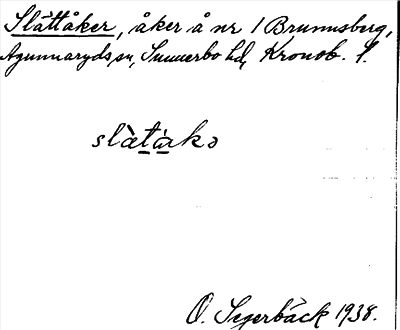 Slåttåker, åker å nr 1 Brunnsberg,
Agunnaryds sn, Sunnerbo hd, Kronob. l.
slàtàrkə
O. Segerbäck 1938.